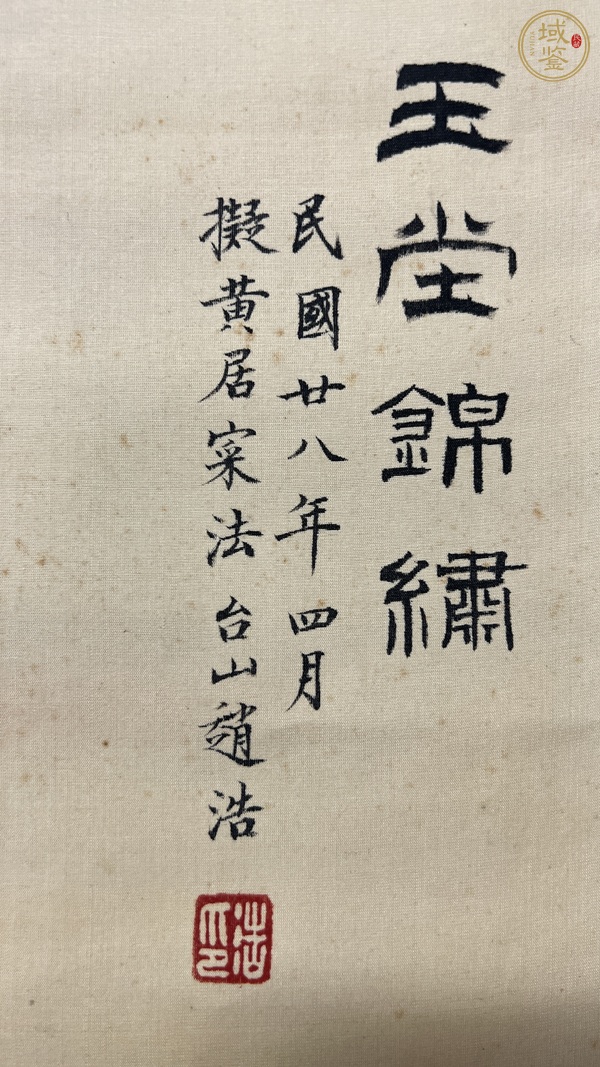 玉堂錦繡
民國廿八年四月
擬黃居寀法 台山趙浩
浩印
域鉴